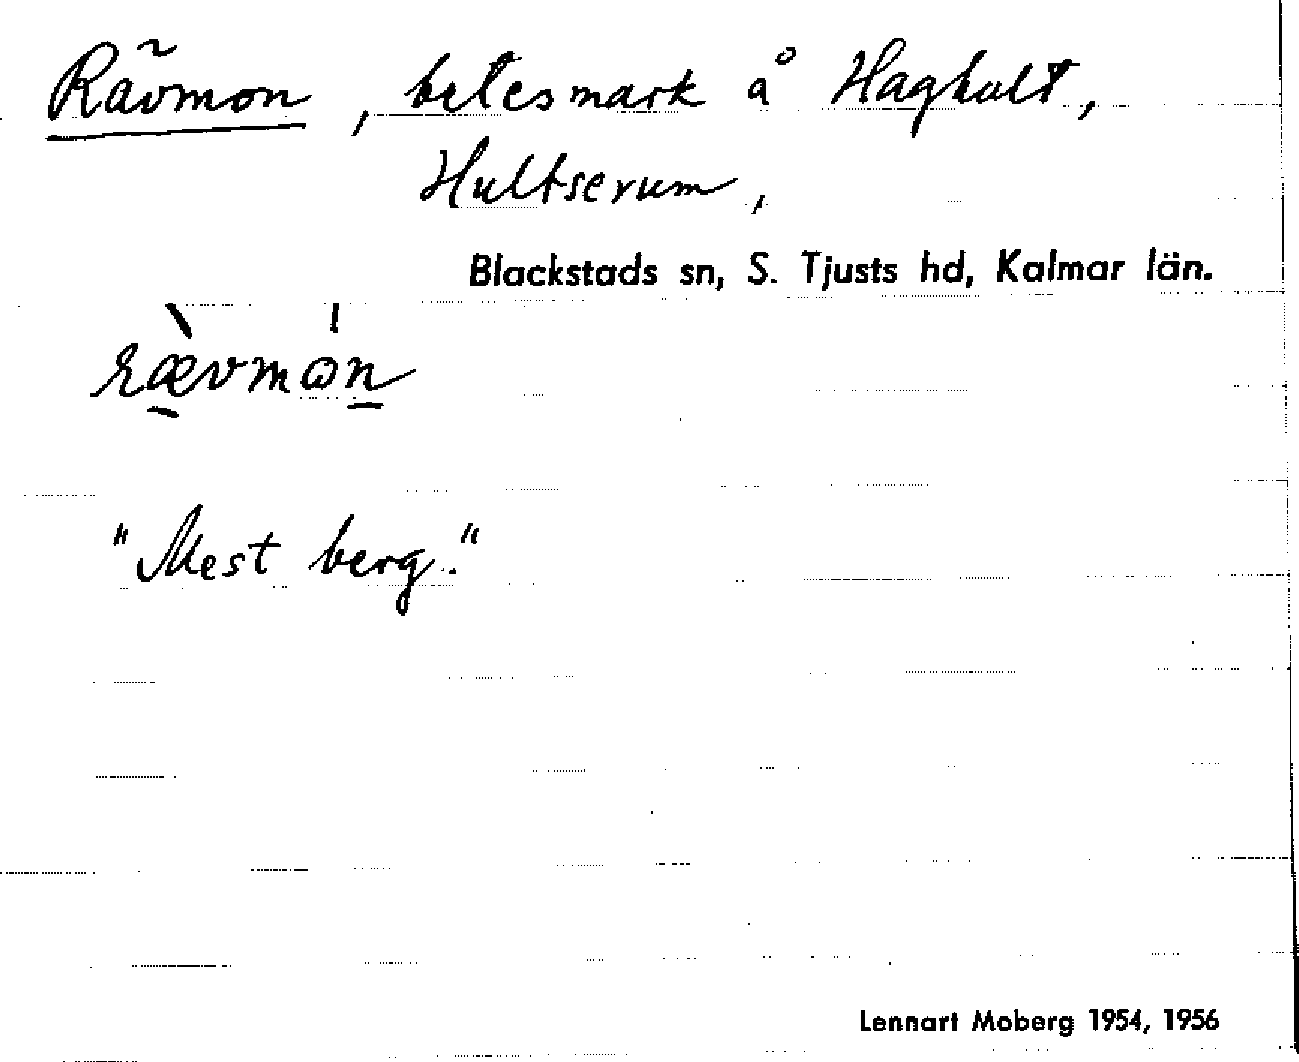 Rävmon, betesmark å Haghult,
Hultserum,
Blackstads sn, S. Tjusts hd, Kalmar län.
"Mest berg."
Lennart Moberg 1954, 1956